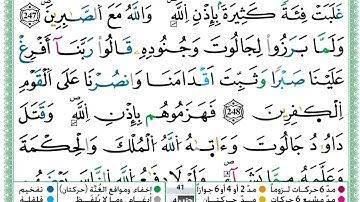 غَلَبَتْ فِئَةً كَثِيرَةً بِإِذْنِ ٱللَّهِ ۗ وَٱللَّهُ مَعَ ٱلصَّـٰبِرِينَ (247)
وَلَمَّا بَرَزُوا۟ لِجَالُوتَ وَجُنُودِهِۦ قَالُوا۟ رَبَّنَآ أَفْرِغْ
عَلَيْنَا صَبْرًا وَثَبِّتْ أَقْدَامَنَا وَٱنصُرْنَا عَلَى ٱلْقَوْمِ
ٱلْكَـٰفِرِينَ (248) فَهَزَمُوهُم بِإِذْنِ ٱللَّهِ وَقَتَلَ
دَاوُۥدُ جَالُوتَ وَءَاتَىٰهُ ٱللَّهُ ٱلْمُلْكَ وَٱلْحِكْمَةَ
وَعَلَّمَهُۥ مِمَّا يَشَآءُ ۗ وَلَوْلَا دَفْعُ ٱللَّهِ ٱلنَّاسَ بَعْضَهُم
مدّ 6 حركات لزوماً مدّ 2 أو 4 أو 6 جوازاً 41 إخفاء ومواقع الغُنَّة (حركتان) تفخيم
مدّ مشبع 6 حركات مدّ حركتان إدغام، وما لا يُلفظ قلقلة